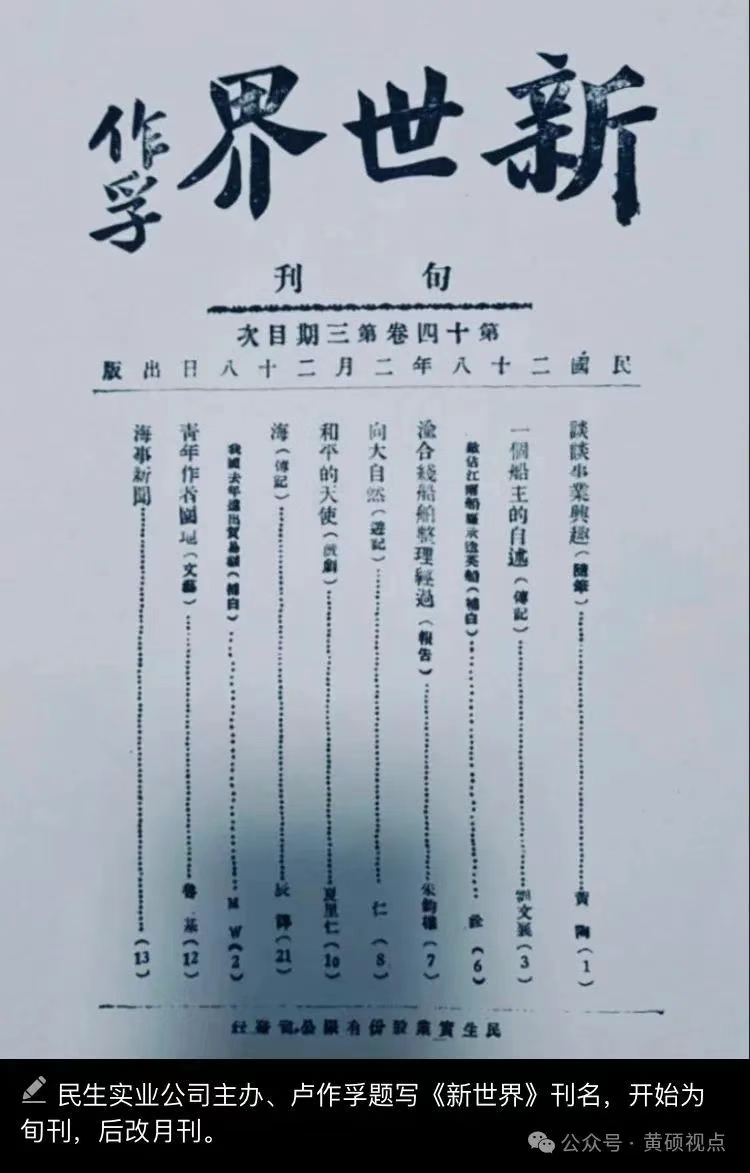 新世界
作孚
旬刊
第十四卷第三期目次
民國二十八年二月二十八日出版
談談事業興趣(隨筆)……黃陶(1)
一個船主的自述(傳記)……文展(3)
敵佔江南船廠承造英船(補白)……(6)
渝合綫船舶整理經過(報告)……朱鈞(7)
向大自然(遊記)……仁(8)
和平的天使(戲劇)……夏里仁(10)
海(傳記)……辰(21)
我國去年進出貿易額(補白)……M W(2)
青年作者園地(文藝)……魯基(12)
海事新聞……(13)
民生實業股份有限公司發行
民生实业公司主办、卢作孚题写《新世界》刊名，开始为
旬刊，后改月刊。
公众号·黄硕视点